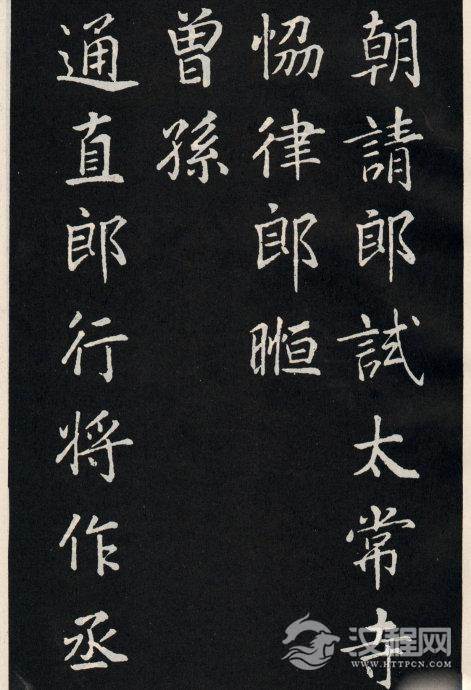 朝請郎試太常寺
恊律郎暅
曾孫
通直郎行将作丞
汉程网
WWW.HTTPCN.COM